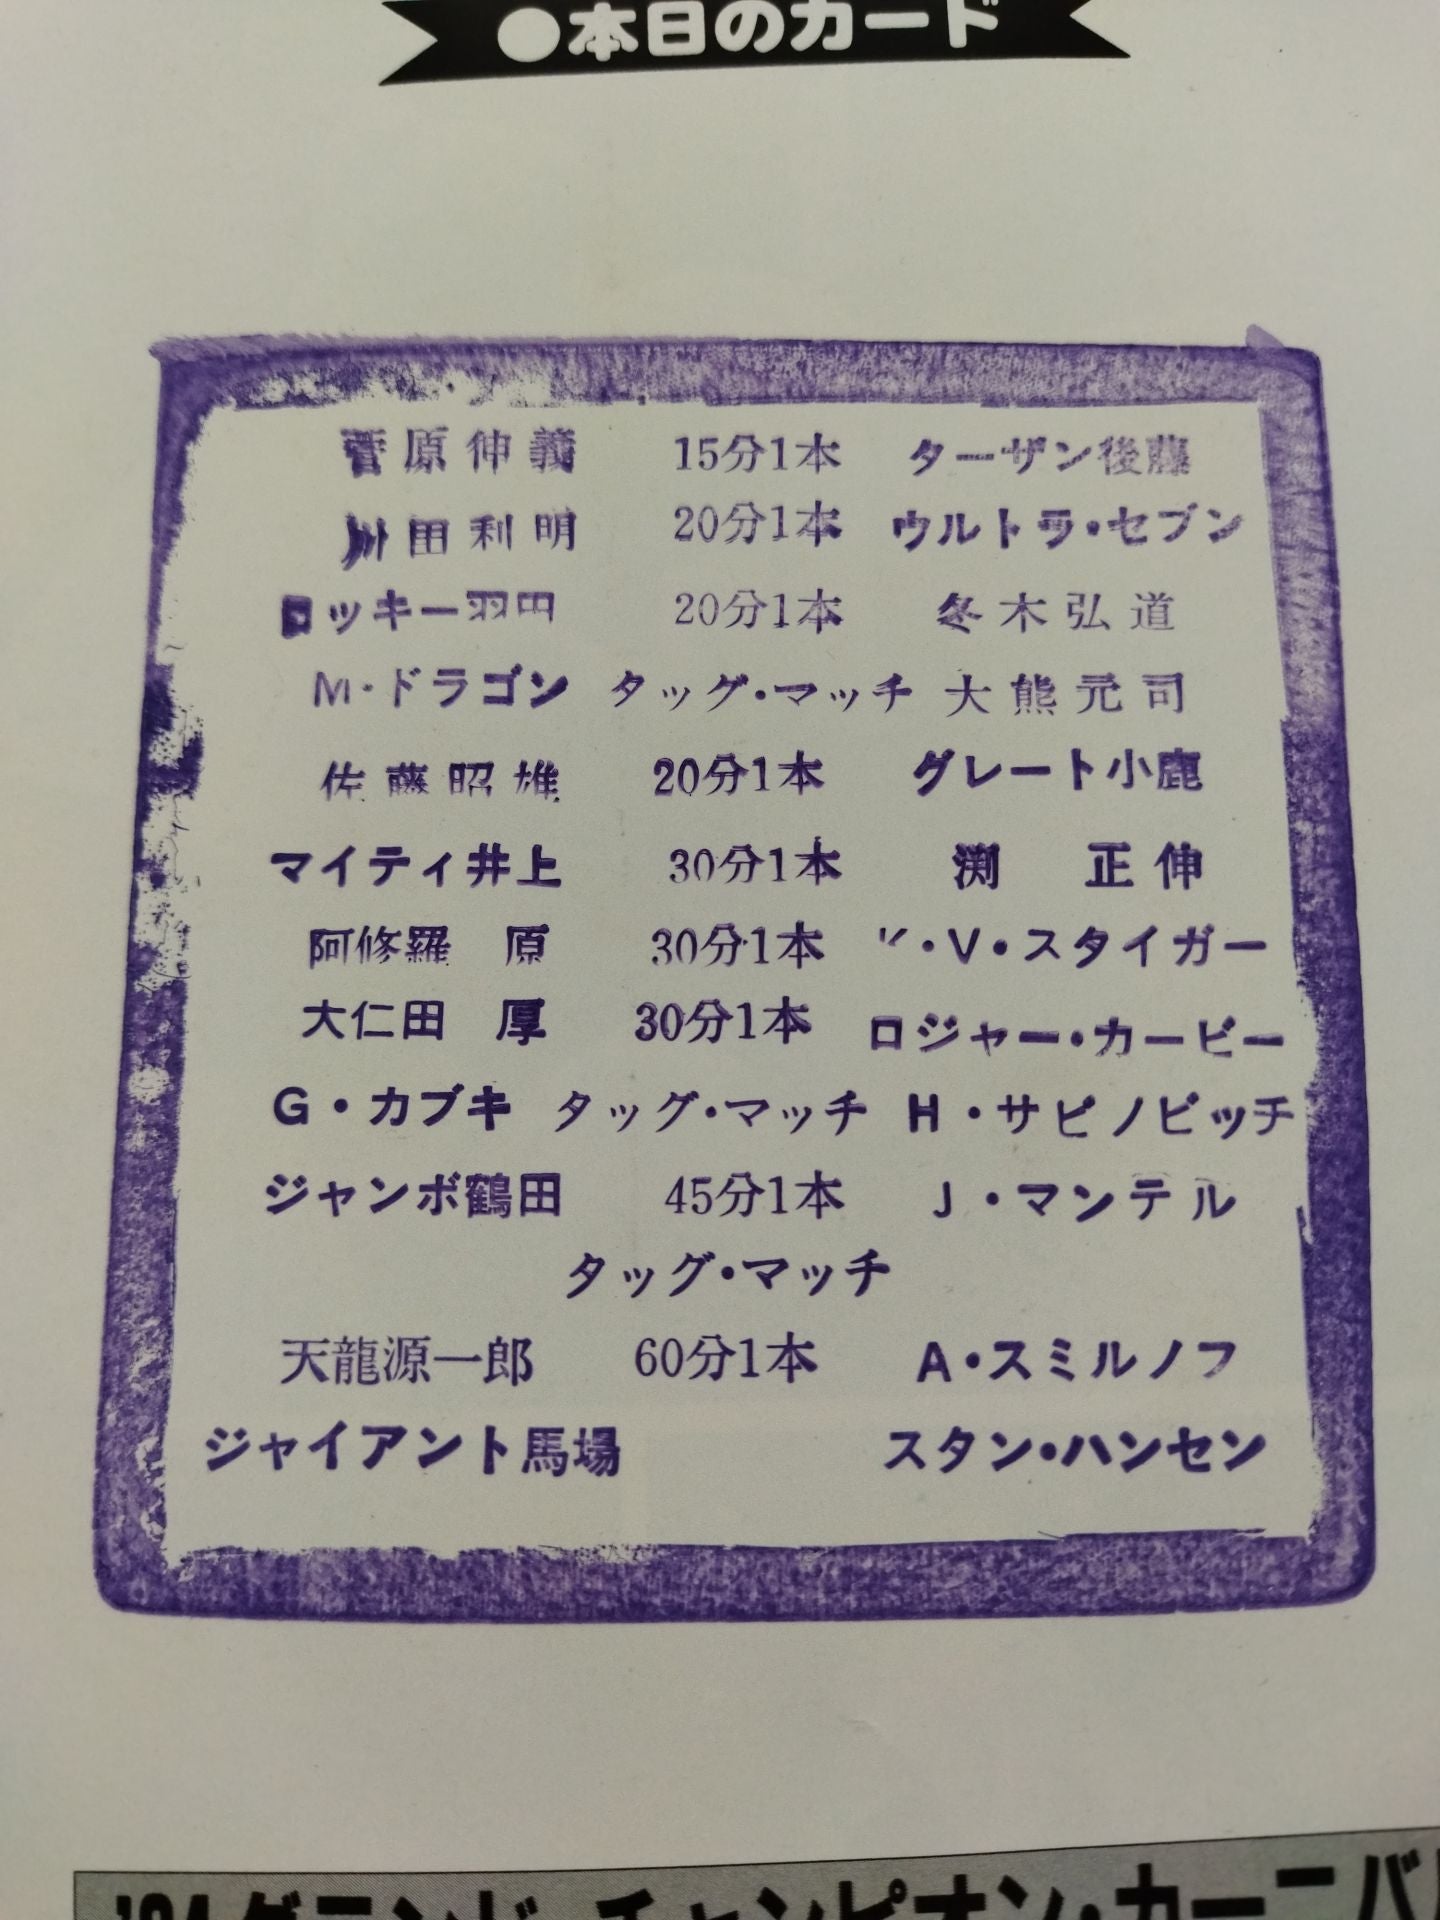 ●本日のカード
菅原伸義 15分1本 ターザン後藤
川田利明 20分1本 ウルトラ・セブン
ロッキー羽田 20分1本 冬木弘道
M・ドラゴン タッグ・マッチ 大熊元司
佐藤昭雄 20分1本 グレート小鹿
マイティ井上 30分1本 渕 正伸
阿修羅 原 30分1本 ・V・スタイガー
大仁田 厚 30分1本 ロジャー・カービー
G・カブキ タッグ・マッチ H・サビノビッチ
ジャンボ鶴田 45分1本 J・マンテル
タッグ・マッチ
天龍源一郎 60分1本 A・スミルノフ
ジャイアント馬場 スタン・ハンセン
'84グランド・チャンピオン・カーニバル